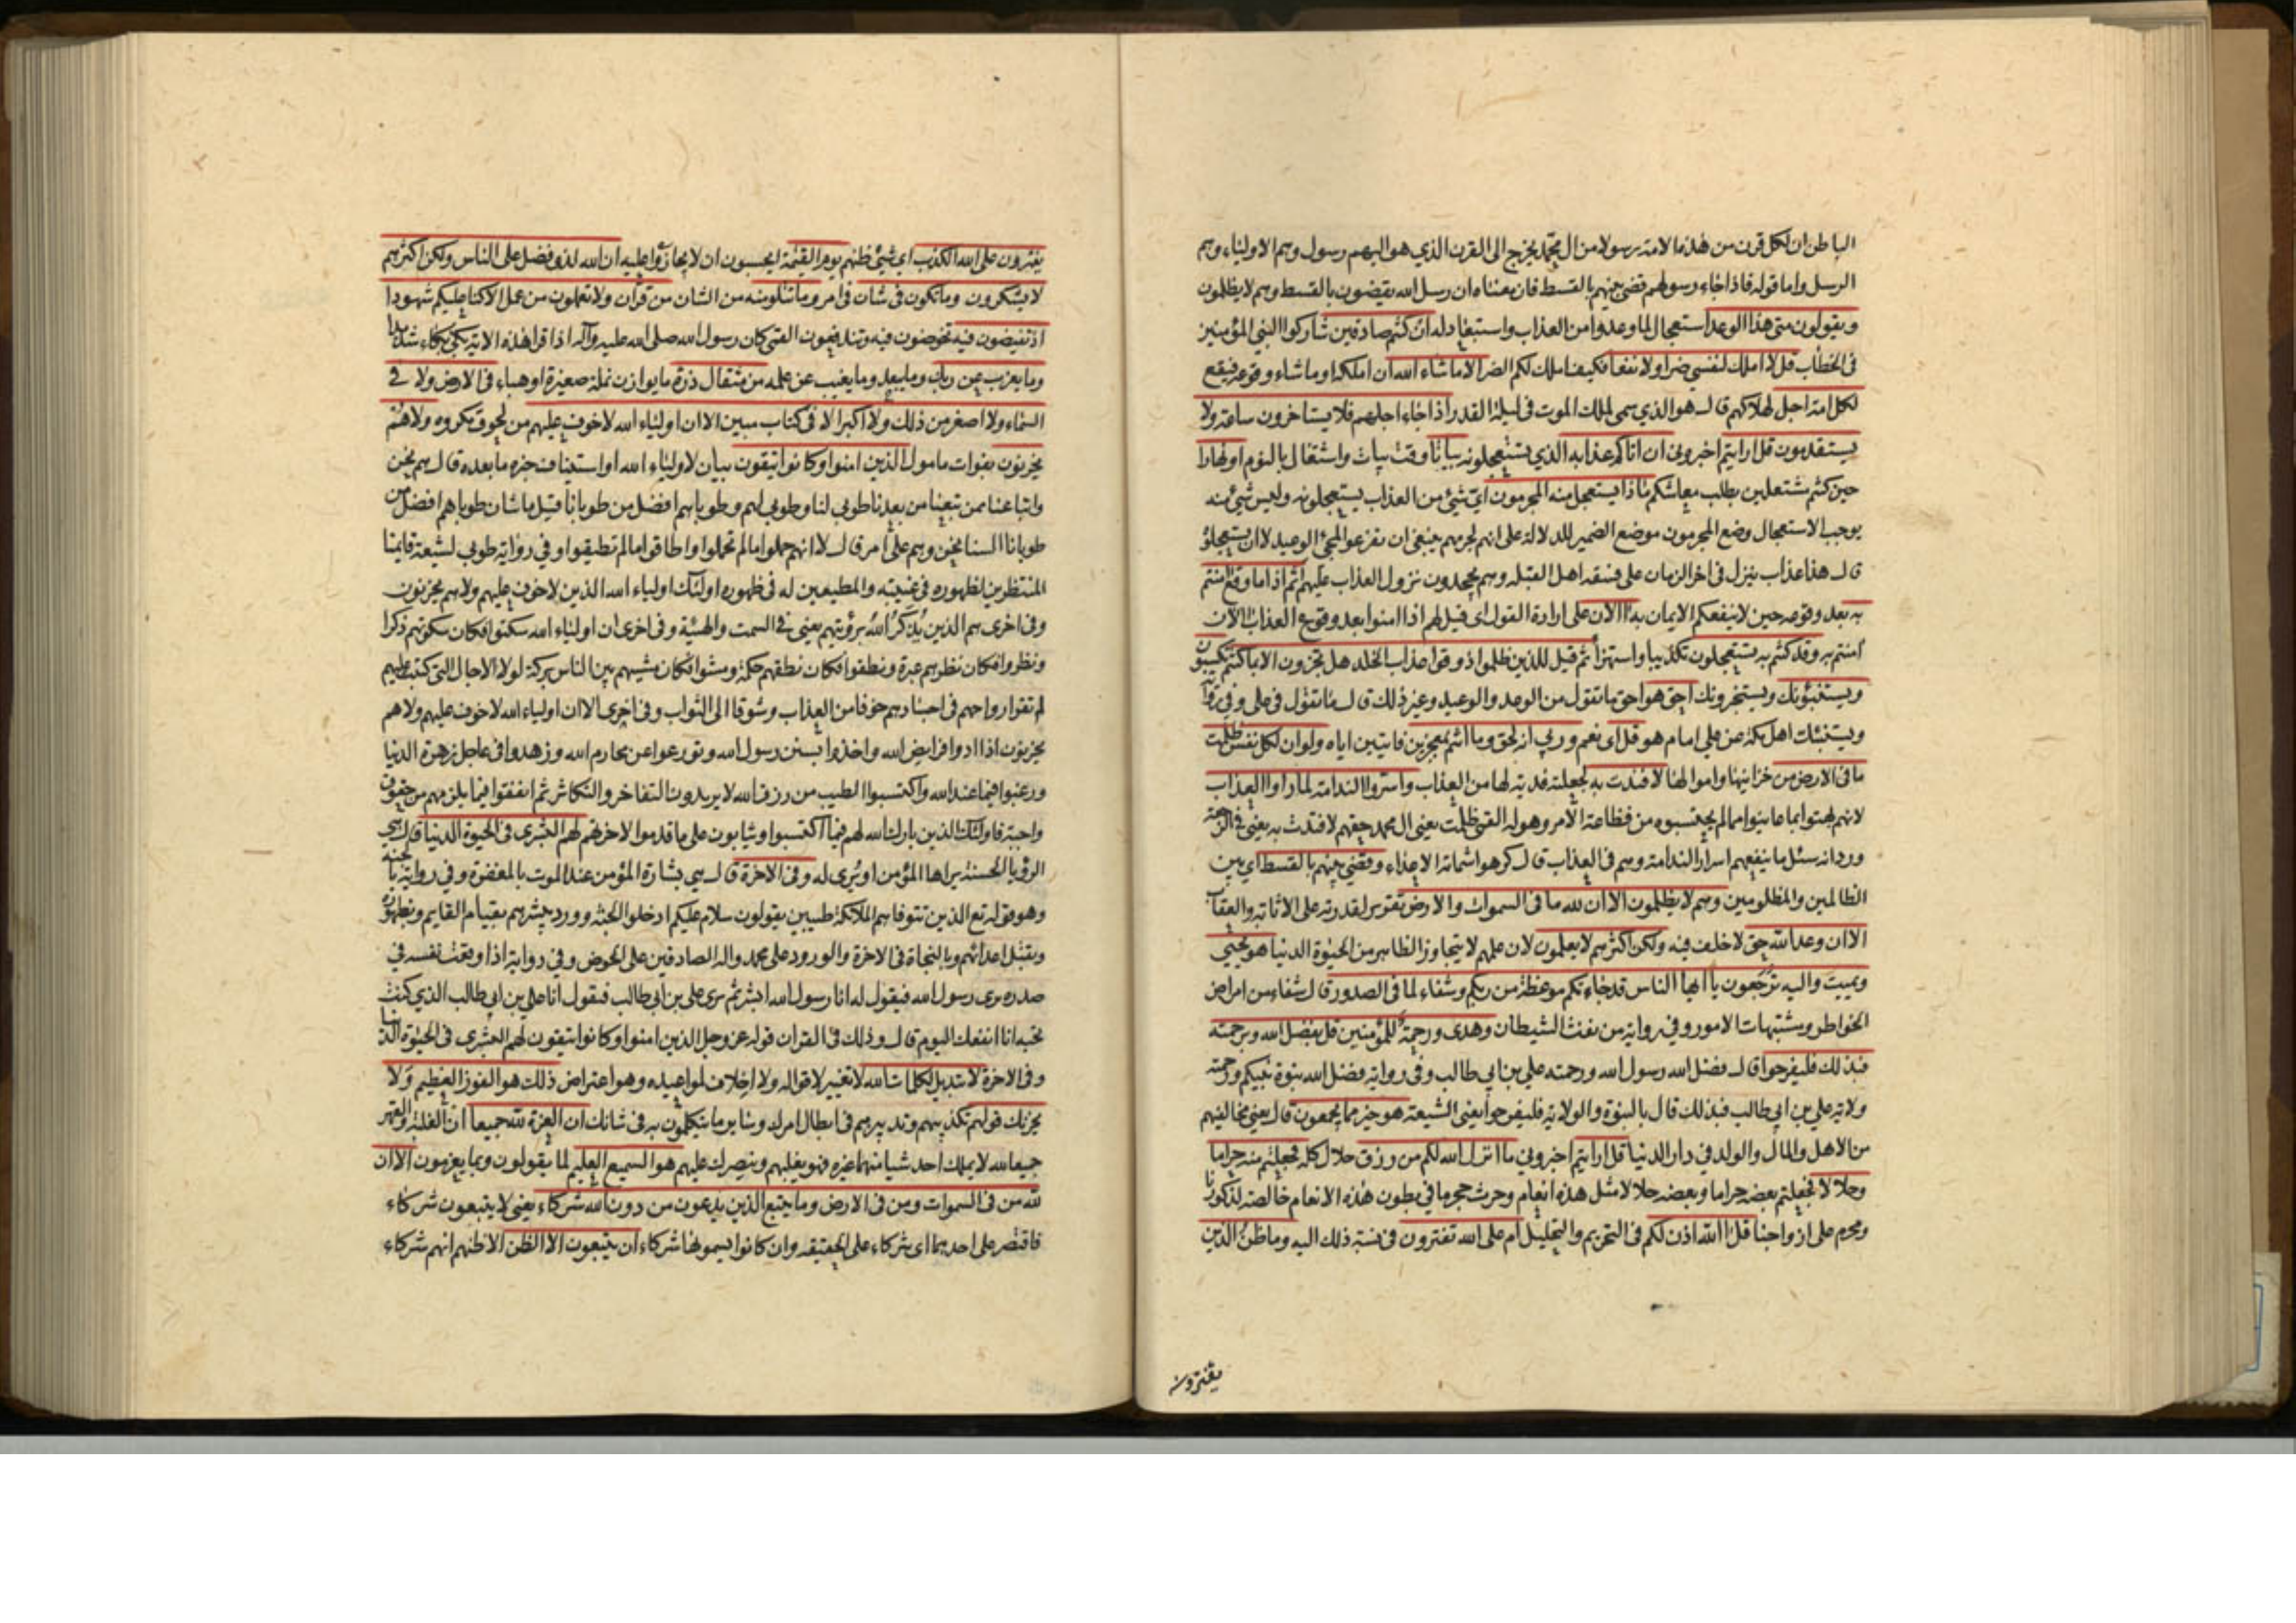 الباطن ان لكل قرن من هذه الامة رسولا من ال محمد يخرج الى القرن الذي هو اليهم رسول وهم الاولياء وهم
الرسل واما قوله فاذا جاء رسولهم قضي بينهم بالقسط فان معناه ان رسل الله يقضون بالقسط وهم لا يظلمون
ويقولون متى هذا الوعد استعجالا لما وعدوا من العذاب واستبعادا له ان كنتم صادقين شاركوا النبي المؤمنين
في الخطاب قل لا املك لنفسي ضرا ولا نفعا فكيف املك لكم الضر الا ما شاء الله ان املكه او ما شاء وقوعه فيقع
لكل امة اجل لهلاكهم قال هو الذي سمي لملك الموت في ليلة القدر اذا جاء اجلهم فلا يستاخرون ساعة ولا
يستقدمون قل ارايتم اخبروني ان اتاكم عذابه الذي تستعجلونه بياتا وقت بيات واشتغال بالنوم او نهارا
حين كنتم مشتغلين بطلب معاشكم ماذا يستعجل منه المجرمون اي شيء من العذاب يستعجلونه وليس شيء منه
يوجب الاستعجال وضع المجرمون موضع الضمير للدلالة على انهم لجرمهم ينبغي ان يفزعوا لمجئ الوعيد لا ان يستعجلوه
قال هذا عذاب ينزل في اخر الزمان على فسقة اهل القبلة وهم يجحدون نزول العذاب عليهم اثم اذا ما وقع امنتم
به بعد وقوعه حين لا ينفعكم الايمان به االان على ارادة القول اي قيل لهم اذا امنوا بعد وقوع العذاب الان
امنتم به وقد كنتم به تستعجلون تكذيبا واستهزأ ثم قيل للذين ظلموا ذوقوا عذاب الخلد هل تجزون الا بما كنتم تكسبون
ويستنبؤنك ويستخبرونك احق هو احق ما تقول من الوعد والوعيد وغير ذلك قال ما تقول في علي وفي رواية
ويستنبئك اهل مكة عن علي امام هو قل اي نعم وربي انه لحق وما انتم بمعجزين فايتين اياه ولو ان لكل نفس ظلمت
ما في الارض من خزاينها واموالها لافتدت به لجعلته فدية لها من العذاب واسروا الندامة لما راوا العذاب
لانهم بهتوا بما عاينوا مما لم يحتسبوه من فظاعة الامر وهوله القمي ظلمت يعني ال محمد حقهم لافتدت به يعني في الرجعة
ورد انه سئل ما ينفعهم اسرار الندامة وهم في العذاب قال كرهوا شماتة الاعداء وقضي بينهم بالقسط اي بين
الظالمين والمظلومين وهم لا يظلمون الا ان لله ما في السموات والارض تقرير لقدرته على الاثابة والعقاب
الا ان وعد الله حق لا خلف فيه ولكن اكثرهم لا يعلمون لان علمهم لا يتجاوز الظاهر من الحيوة الدنيا هو يحيي
ويميت واليه ترجعون يا ايها الناس قد جاءتكم موعظة من ربكم وشفاء لما في الصدور قال شفاء من امراض
الخواطر ومشتبهات الامور وفي رواية من نفث الشيطان وهدى ورحمة للمؤمنين قل بفضل الله وبرحمته
فبذلك فليفرحوا قال فضل الله رسول الله ورحمته علي بن ابي طالب وفي رواية فضل الله نبوة نبيكم ورحمته
ولاية علي بن ابي طالب فبذلك قال بالنبوة والولاية فليفرحوا يعني الشيعة هو خير مما يجمعون قال يعني مخالفيهم
من الاهل والمال والولد في دار الدنيا قل ارايتم اخبروني ما انزل الله لكم من رزق حلال كله فجعلتم منه حراما
وحلالا فجعلتم بعضه حراما وبعضه حلالا مثل هذه انعام وحرث حجر ما في بطون هذه الانعام خالصة لذكورنا
ومحرم على ازواجنا قل االله اذن لكم في التحريم والتحليل ام على الله تفترون في نسبة ذلك اليه وما ظن الذين
يفترون
يفترون على الله الكذب اي شيئ ظنهم يوم القيمة ايحسبون ان لا يجازوا عليه ان الله لذو فضل على الناس ولكن اكثرهم
لا يشكرون وما تكون في شان في امر وما تتلو منه من الشان من قرآن ولا تعملون من عمل الا كنا عليكم شهودا
اذ تفيضون فيه تخوضون فيه وتندفعون القمي كان رسول الله صلى الله عليه وآله اذا قرا هذه الاية بكى بكاء شديدا
وما يعزب عن ربك وما يبعد وما يغيب عن علمه من مثقال ذرة ما يوازن نملة صغيرة او هباء في الارض ولا في
السماء ولا اصغر من ذلك ولا اكبر الا في كتاب مبين الا ان اولياء الله لا خوف عليهم من لحوق مكروه ولا هم
يحزنون بفوات مامول الذين امنوا وكانوا يتقون بيان لاولياء الله او استيناف خبره ما بعده قال هم نحن
واتباعنا ممن تبعنا من بعدنا طوبى لنا وطوبى لهم وطوباهم افضل من طوبانا قيل ما شان طوباهم افضل من
طوبانا السنا نحن وهم على امر قال لا انهم حملوا ما لم تحملوا واطاقوا ما لم تطيقوا وفي رواية طوبى لشيعة قايمنا
المنتظرين لظهوره في غيبته والمطيعين له في ظهوره اولئك اولياء الله الذين لا خوف عليهم ولا هم يحزنون
وفي اخرى هم الذين يذكر الله برؤيتهم يعني في السمت والهيئة وفي اخرى ان اولياء الله سكتوا فكان سكوتهم ذكرا
ونظروا فكان نظرهم عبرة ونطقوا فكان نطقهم حكمة ومشوا فكان مشيهم بين الناس بركة لولا الاجال التي كتبت عليهم
لم تقر ارواحهم في اجسادهم خوفا من العذاب وشوقا الى الثواب وفي اخرى الا ان اولياء الله لا خوف عليهم ولا هم
يحزنون اذا ادوا فرايض الله واخذوا بسنن رسول الله وتورعوا عن محارم الله وزهدوا في عاجل زهرة الدنيا
ورغبوا فيما عند الله واكتسبوا الطيب من رزق الله لا يريدون التفاخر والتكاثر ثم انفقوا فيما يلزمهم من حقوق
واجبة فاولئك الذين بارك الله لهم فيما اكتسبوا ويثابون على ما قدموا لاخرتهم لهم البشرى في الحيوة الدنيا قال هي
الرؤيا الحسنة يراها المؤمن او ترى له وفي الاخرة قال هي بشارة المؤمن عند الموت بالمغفرة وفي رواية بالجنة
وهو قوله تع الذين تتوفاهم الملائكة طيبين يقولون سلام عليكم ادخلوا الجنة وورد يبشرهم بقيام القايم وبظهوره
وبقتل اعدائهم وبالنجاة في الاخرة والورود على محمد واله الصادقين على الحوض وفي رواية اذا وقعت نفسه في
صدره يرى رسول الله فيقول له انا رسول الله ابشر ثم يرى علي بن ابي طالب فيقول انا علي بن ابي طالب الذي كنت
تحبه انا انفعك اليوم قال وذلك في القران قوله عز وجل الذين امنوا وكانوا يتقون لهم البشرى في الحيوة الدنيا
وفي الاخرة لا تبديل لكلمات الله لا تغيير لاقواله ولا اخلاف لمواعيده وهو اعتراض ذلك هو الفوز العظيم ولا
يحزنك قولهم تكذيبهم وتدبيرهم في ابطال امرك وساير ما يتكلمون به في شانك ان العزة لله جميعا ان الغلبة والقهر
جميعا لله لا يملك احد شيا منهما غيره فهو يغلبهم وينصرك عليهم هو السميع العليم لما يقولون وبما يعزمون الا ان
لله من في السموات ومن في الارض وما يتبع الذين يدعون من دون الله شركاء يعني لا يتبعون شركاء
فاقتصر على احدهما اي شركاء على الحقيقة وان كانوا يسمونها شركاء ان يتبعون الا الظن الا ظنهم انهم شركاء